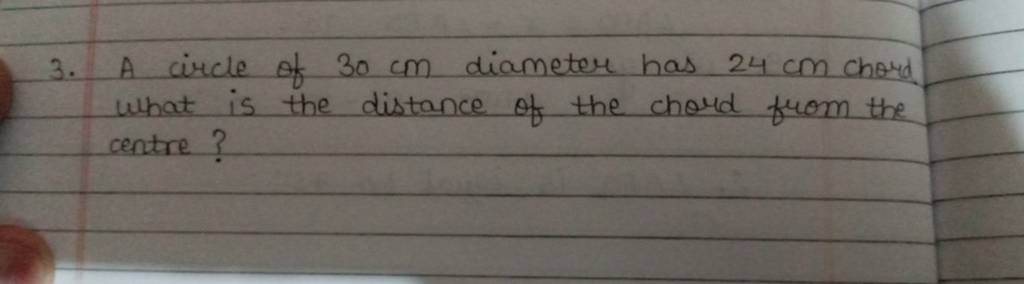 3. A circle of 30 cm diameter has 24 cm chord
what is the distance of the chord from the
centre ?